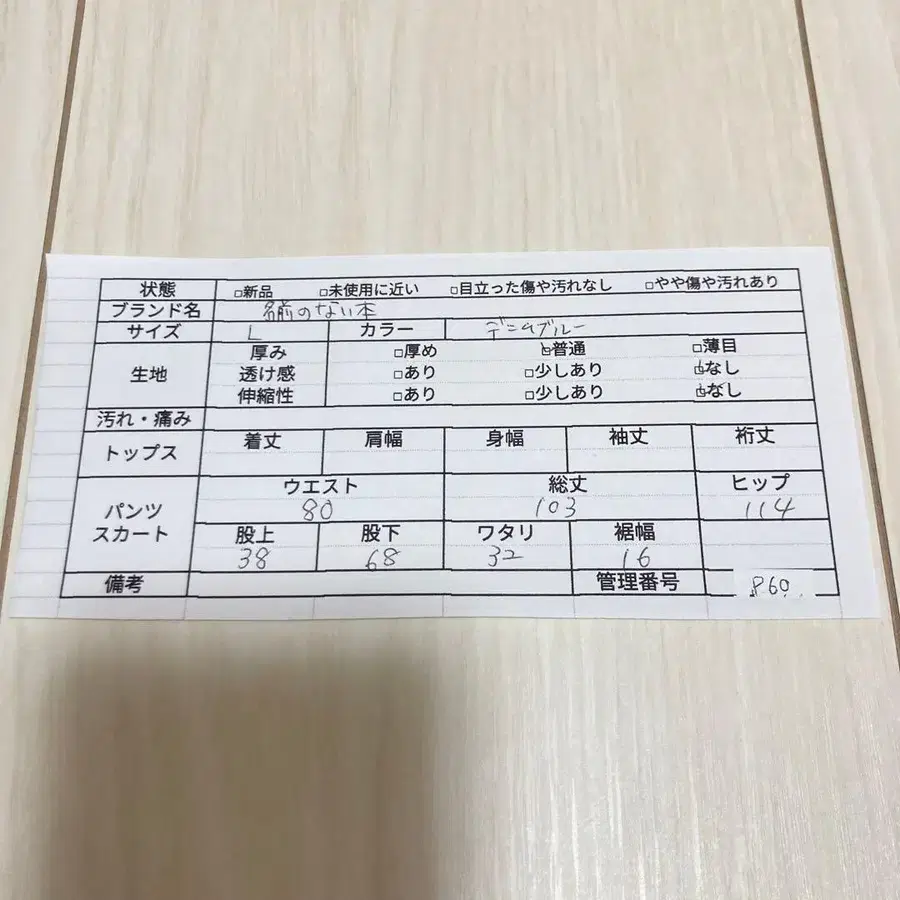 状態 □新品 □未使用に近い □目立った傷や汚れなし □やや傷や汚れあり
ブランド名 名前のない本
サイズ L カラー デニムブルー
生地 厚み □厚め □普通 □薄目
透け感 □あり □少しあり □なし
伸縮性 □あり □少しあり □なし
汚れ・痛み
トップス 着丈 肩幅 身幅 袖丈 裄丈
パンツ スカート ウエスト 総丈 ヒップ
80 103 114
股上 股下 ワタリ 裾幅
38 68 32 16
備考 管理番号 860